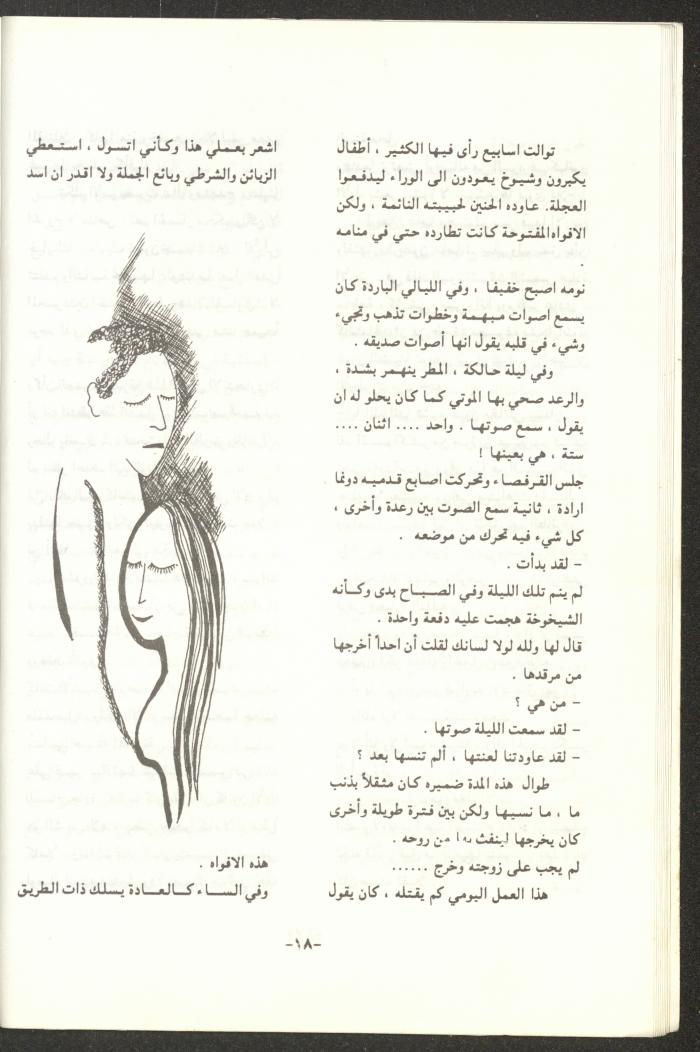 توالت اسابيع رأى فيها الكثير ، أطفال
يكبرون وشيوخ يعودون الى الوراء ليدفعوا
العجلة. عاوده الحنين لحبيبته النائمة ، ولكن
الافواه المفتوحة كانت تطارده حتي في منامه
.
نومه اصبح خفيفا ، وفي الليالي الباردة كان
يسمع اصوات مبهمة وخطوات تذهب وتجيء
وشيء في قلبه يقول انها أصوات صديقه .
وفي ليلة حالكة ، المطر ينهمر بشدة ،
والرعد صحي بها الموتي كما كان يحلو له ان
يقول ، سمع صوتها . واحد .... اثنان ....
ستة ، هي بعينها !
جلس القرفصاء وتحركت اصابع قدميه دونما
ارادة ، ثانية سمع الصوت بين رعدة وأخرى ،
كل شيء فيه تحرك من موضعه .
– لقد بدأت .
لم ينم تلك الليلة وفي الصباح بدى وكأنه
الشيخوخة هجمت عليه دفعة واحدة .
قال لها ولله لولا لسانك لقلت أن احداً أخرجها
من مرقدها .
– من هي ؟
– لقد سمعت الليلة صوتها .
– لقد عاودتنا لعنتها ، ألم تنسها بعد ؟
طوال هذه المدة ضميره كان مثقلاً بذنب
ما ، ما نسيها ولكن بين فترة طويلة وأخرى
كان يخرجها لينفث بها من روحه .
لم يجب على زوجته وخرج ......
هذا العمل اليومي كم يقتله ، كان يقول
اشعر بعملي هذا وكأني اتسول ، استعطي
الزبائن والشرطي وبائع الجملة ولا اقدر ان اسد
هذه الافواه .
وفي الساء كالعادة يسلك ذات الطريق
-١٨-